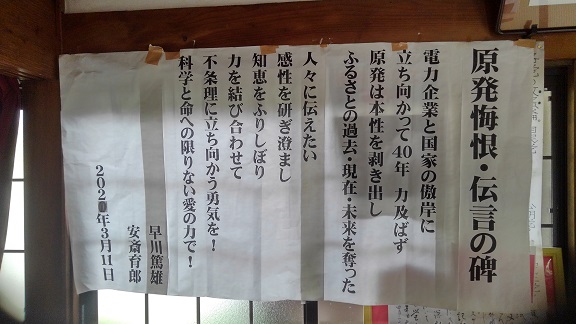 原発悔恨・伝言の碑
電力企業と国家の傲岸に
立ち向かって40年 力及ばず
原発は本性を剥き出し
ふるさとの過去・現在・未来を奪った
人々に伝えたい
感性を研ぎ澄まし
知恵をふりしぼり
力を結び合わせて
不条理に立ち向かう勇気を!
科学と命への限りない愛の力で!
早川篤雄
安斎育郎
2021年3月11日